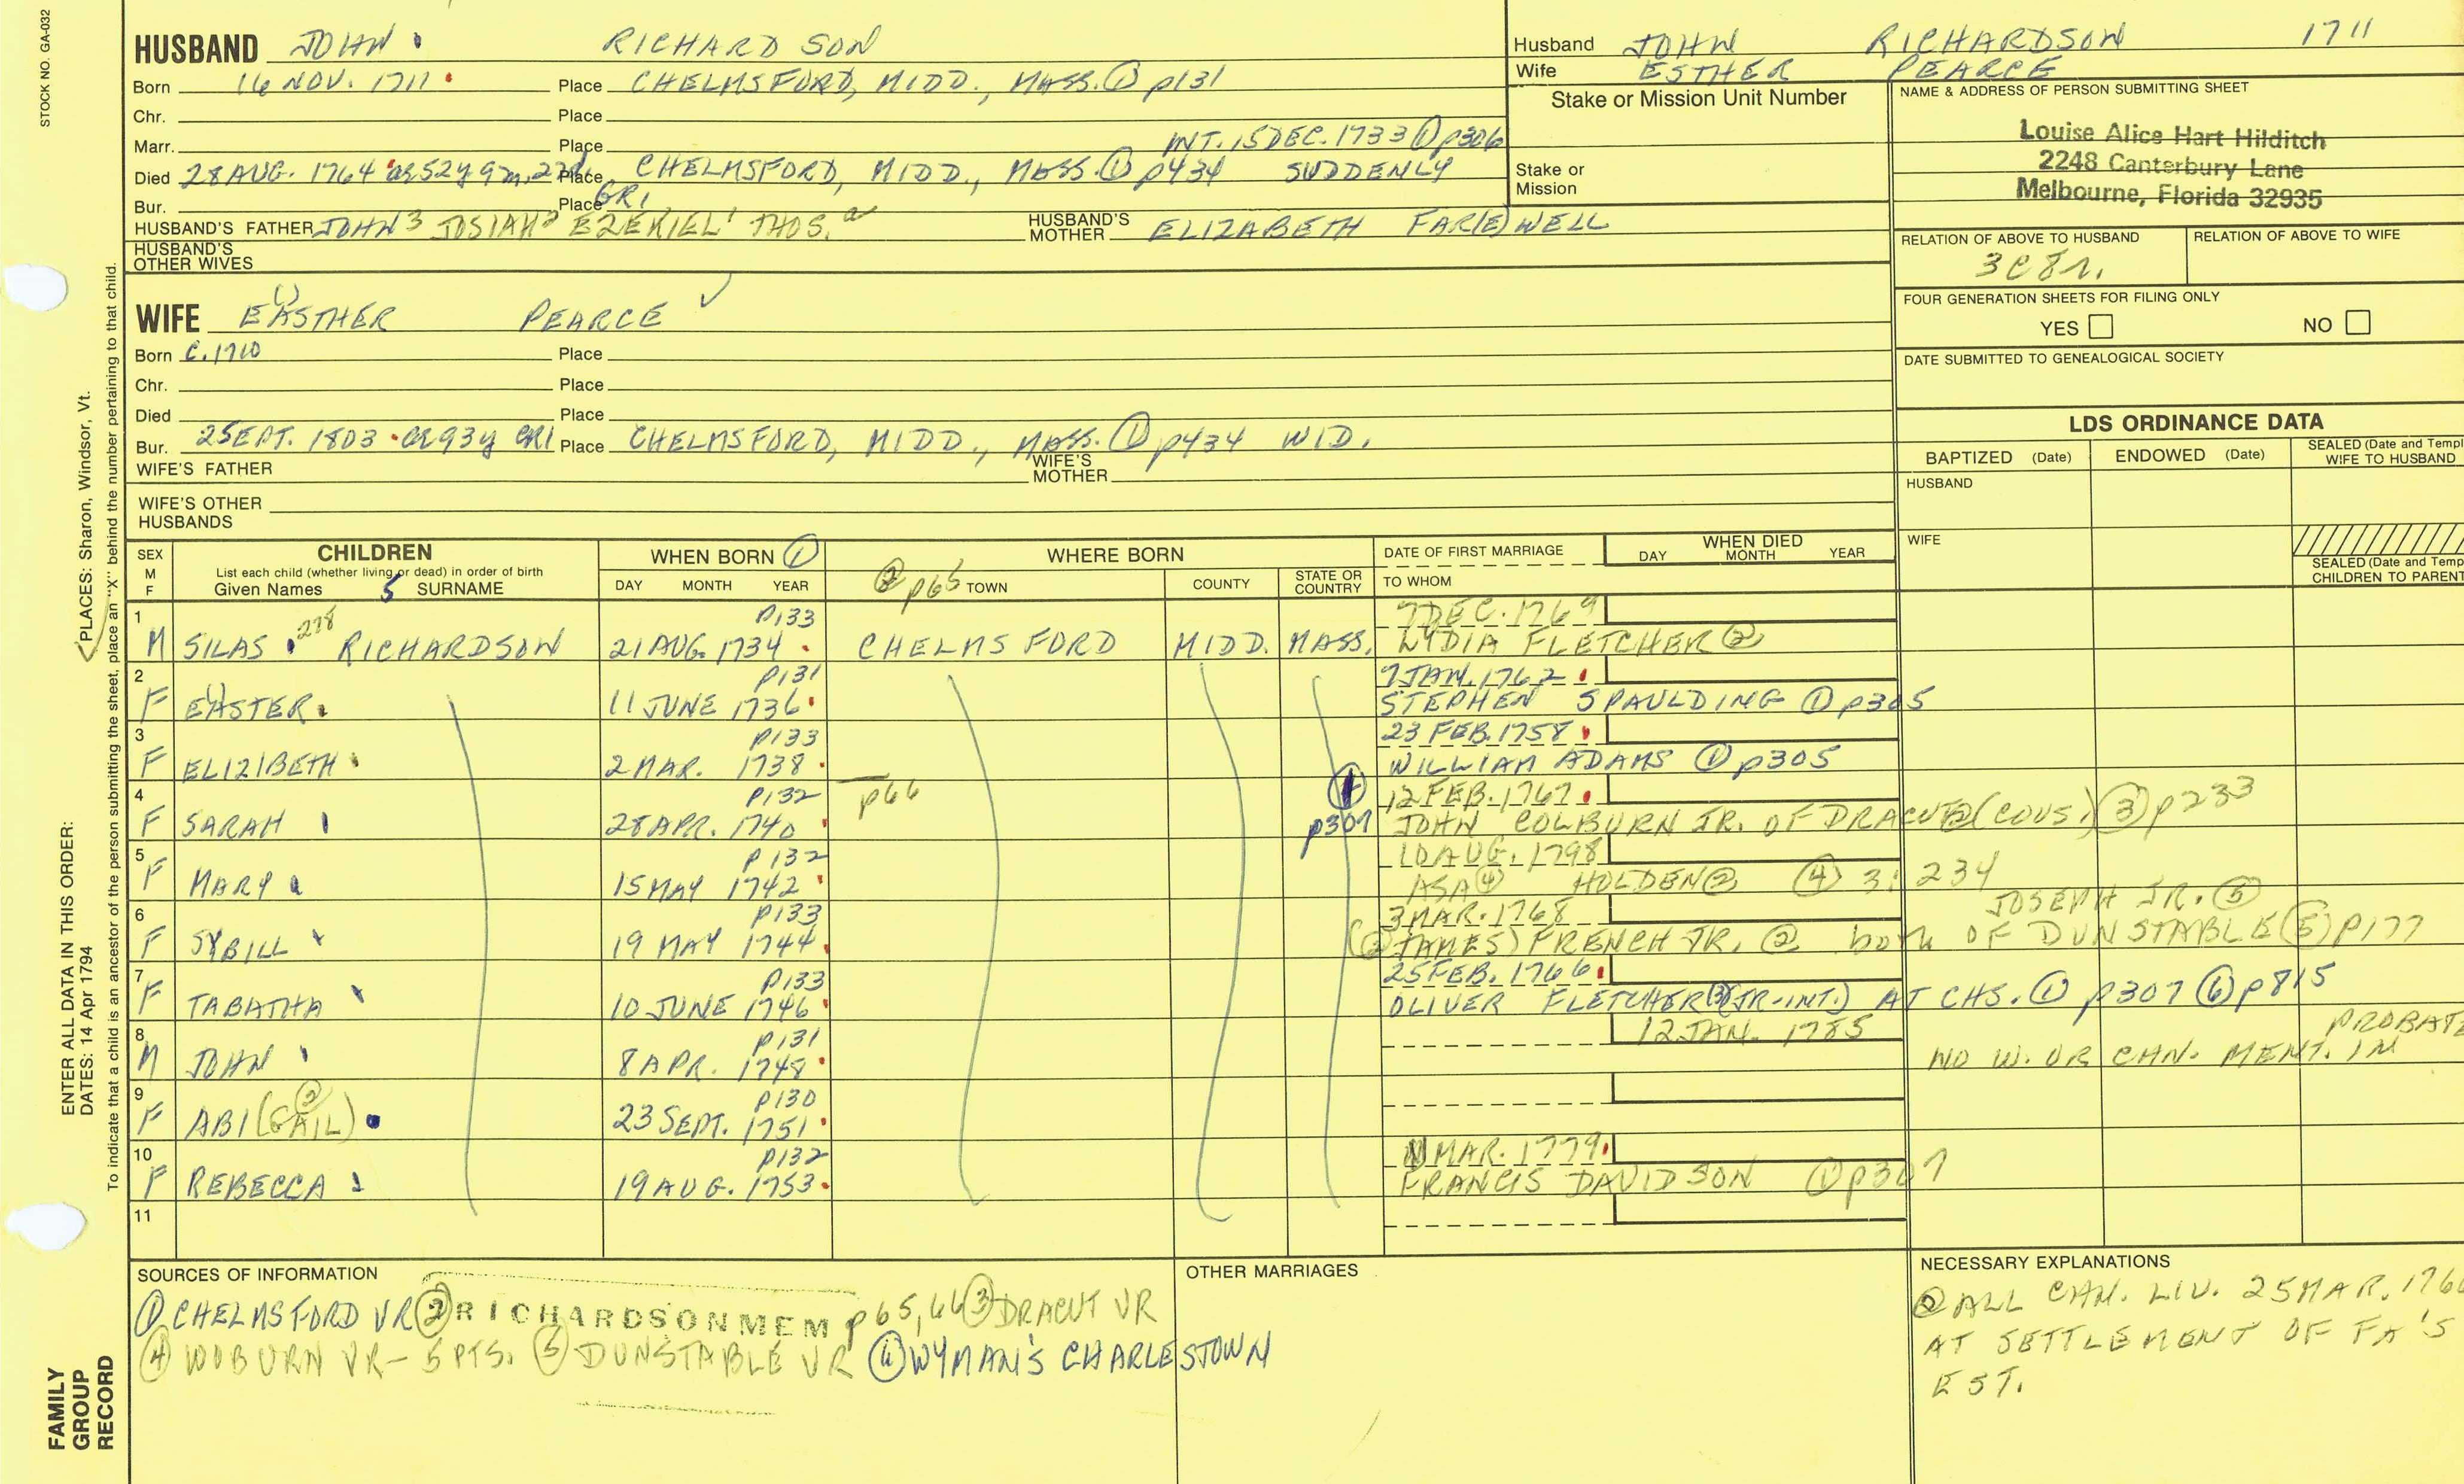 STOCK NO. GA-032
HUSBAND JOHN RICHARDSON
Born 16 NOV. 1711 Place CHELMSFORD, MIDD., MASS. ① p131
Chr. Place
Marr. Place INT. 15 DEC. 1733 ① p306
Died 28 AUG. 1764 ae 52y 9m, 22d. Place CHELMSFORD, MIDD., MASS. ① p434 SUDDENLY
Bur. Place GR1
HUSBAND'S FATHER JOHN3 JOSIAH2 EZEKIEL1 THOS.a HUSBAND'S MOTHER ELIZABETH FAR(E)WELL
HUSBAND'S OTHER WIVES
WIFE EASTHER PEARCE
Born C. 1710 Place
Chr. Place
Died Place
Bur. 2 SEPT. 1803 ae 93y GR1 Place CHELMSFORD, MIDD., MASS. ① p434 WID.
WIFE'S FATHER WIFE'S MOTHER
WIFE'S OTHER HUSBANDS
Husband JOHN RICHARDSON 1711
Wife ESTHER PEARCE
Stake or Mission Unit Number
Stake or Mission
NAME & ADDRESS OF PERSON SUBMITTING SHEET
Louise Alice Hart Hilditch
2248 Canterbury Lane
Melbourne, Florida 32935
RELATION OF ABOVE TO HUSBAND RELATION OF ABOVE TO WIFE
3C8r.
FOUR GENERATION SHEETS FOR FILING ONLY
YES NO
DATE SUBMITTED TO GENEALOGICAL SOCIETY
LDS ORDINANCE DATA
BAPTIZED (Date) ENDOWED (Date) SEALED (Date and Templ
WIFE TO HUSBAND
HUSBAND
WIFE
SEALED (Date and Temp
CHILDREN TO PAREN
SEX M F CHILDREN WHEN BORN ① WHERE BORN DATE OF FIRST MARRIAGE WHEN DIED
List each child (whether living or dead) in order of birth
Given Names 5 SURNAME DAY MONTH YEAR ② p65 TOWN COUNTY STATE OR COUNTRY TO WHOM DAY MONTH YEAR
1 P133 7 DEC. 1769
M SILAS 278 RICHARDSON 21 AUG. 1734 CHELMSFORD MIDD. MASS. LYDIA FLETCHER ②
2 P131 7 JAN. 1762
F EASTER 11 JUNE 1736 STEPHEN SPAULDING ① p305
3 P133 23 FEB. 1758
F ELIZIBETH 2 MAR. 1738 WILLIAM ADAMS ① p305
4 P132 p66 ① 12 FEB. 1767
F SARAH 28 APR. 1740 p307 JOHN COLBURN JR. OF DRACUT ② (COUS.) ③ p233
5 P132 10 AUG. 1798
F MARY 15 MAY 1742 ASA ④ HOLDEN ② ④ 3: 234
6 P133 3 MAR. 1768 JOSEPH JR. ⑤
F SYBILL 19 MAY 1744 (② JAMES) FRENCH JR. ② both OF DUNSTABLE ⑤ p177
7 P133 25 FEB. 1766
F TABATHA 10 JUNE 1746 OLIVER FLETCHER (JR-INT.) AT CHS. ① p307 ⑥ p815
8 P131 12 JAN. 1785 PROBATE
M JOHN 8 APR. 1748 NO W. OR CHN. MENT. IN
9 P130
F ABI(GAIL) ② 23 SEPT. 1751
10 P132 MAR. 1779
F REBECCA 19 AUG. 1753 FRANCIS DAVIDSON ① p307
11
SOURCES OF INFORMATION
① CHELMSFORD VR ② RICHARDSON MEM p65,66 ③ DRACUT VR
④ WOBURN VR - 5 PTS. ⑤ DUNSTABLE VR ⑥ WYMAN'S CHARLESTOWN
OTHER MARRIAGES
NECESSARY EXPLANATIONS
② ALL CHN. LIV. 25 MAR. 176
AT SETTLEMENT OF FA'S
EST.
ENTER ALL DATA IN THIS ORDER:
DATES: 14 Apr 1794
PLACES: Sharon, Windsor, Vt.
To indicate that a child is an ancestor of the person submitting the sheet, place an "X" behind the number pertaining to that child.
FAMILY
GROUP
RECORD